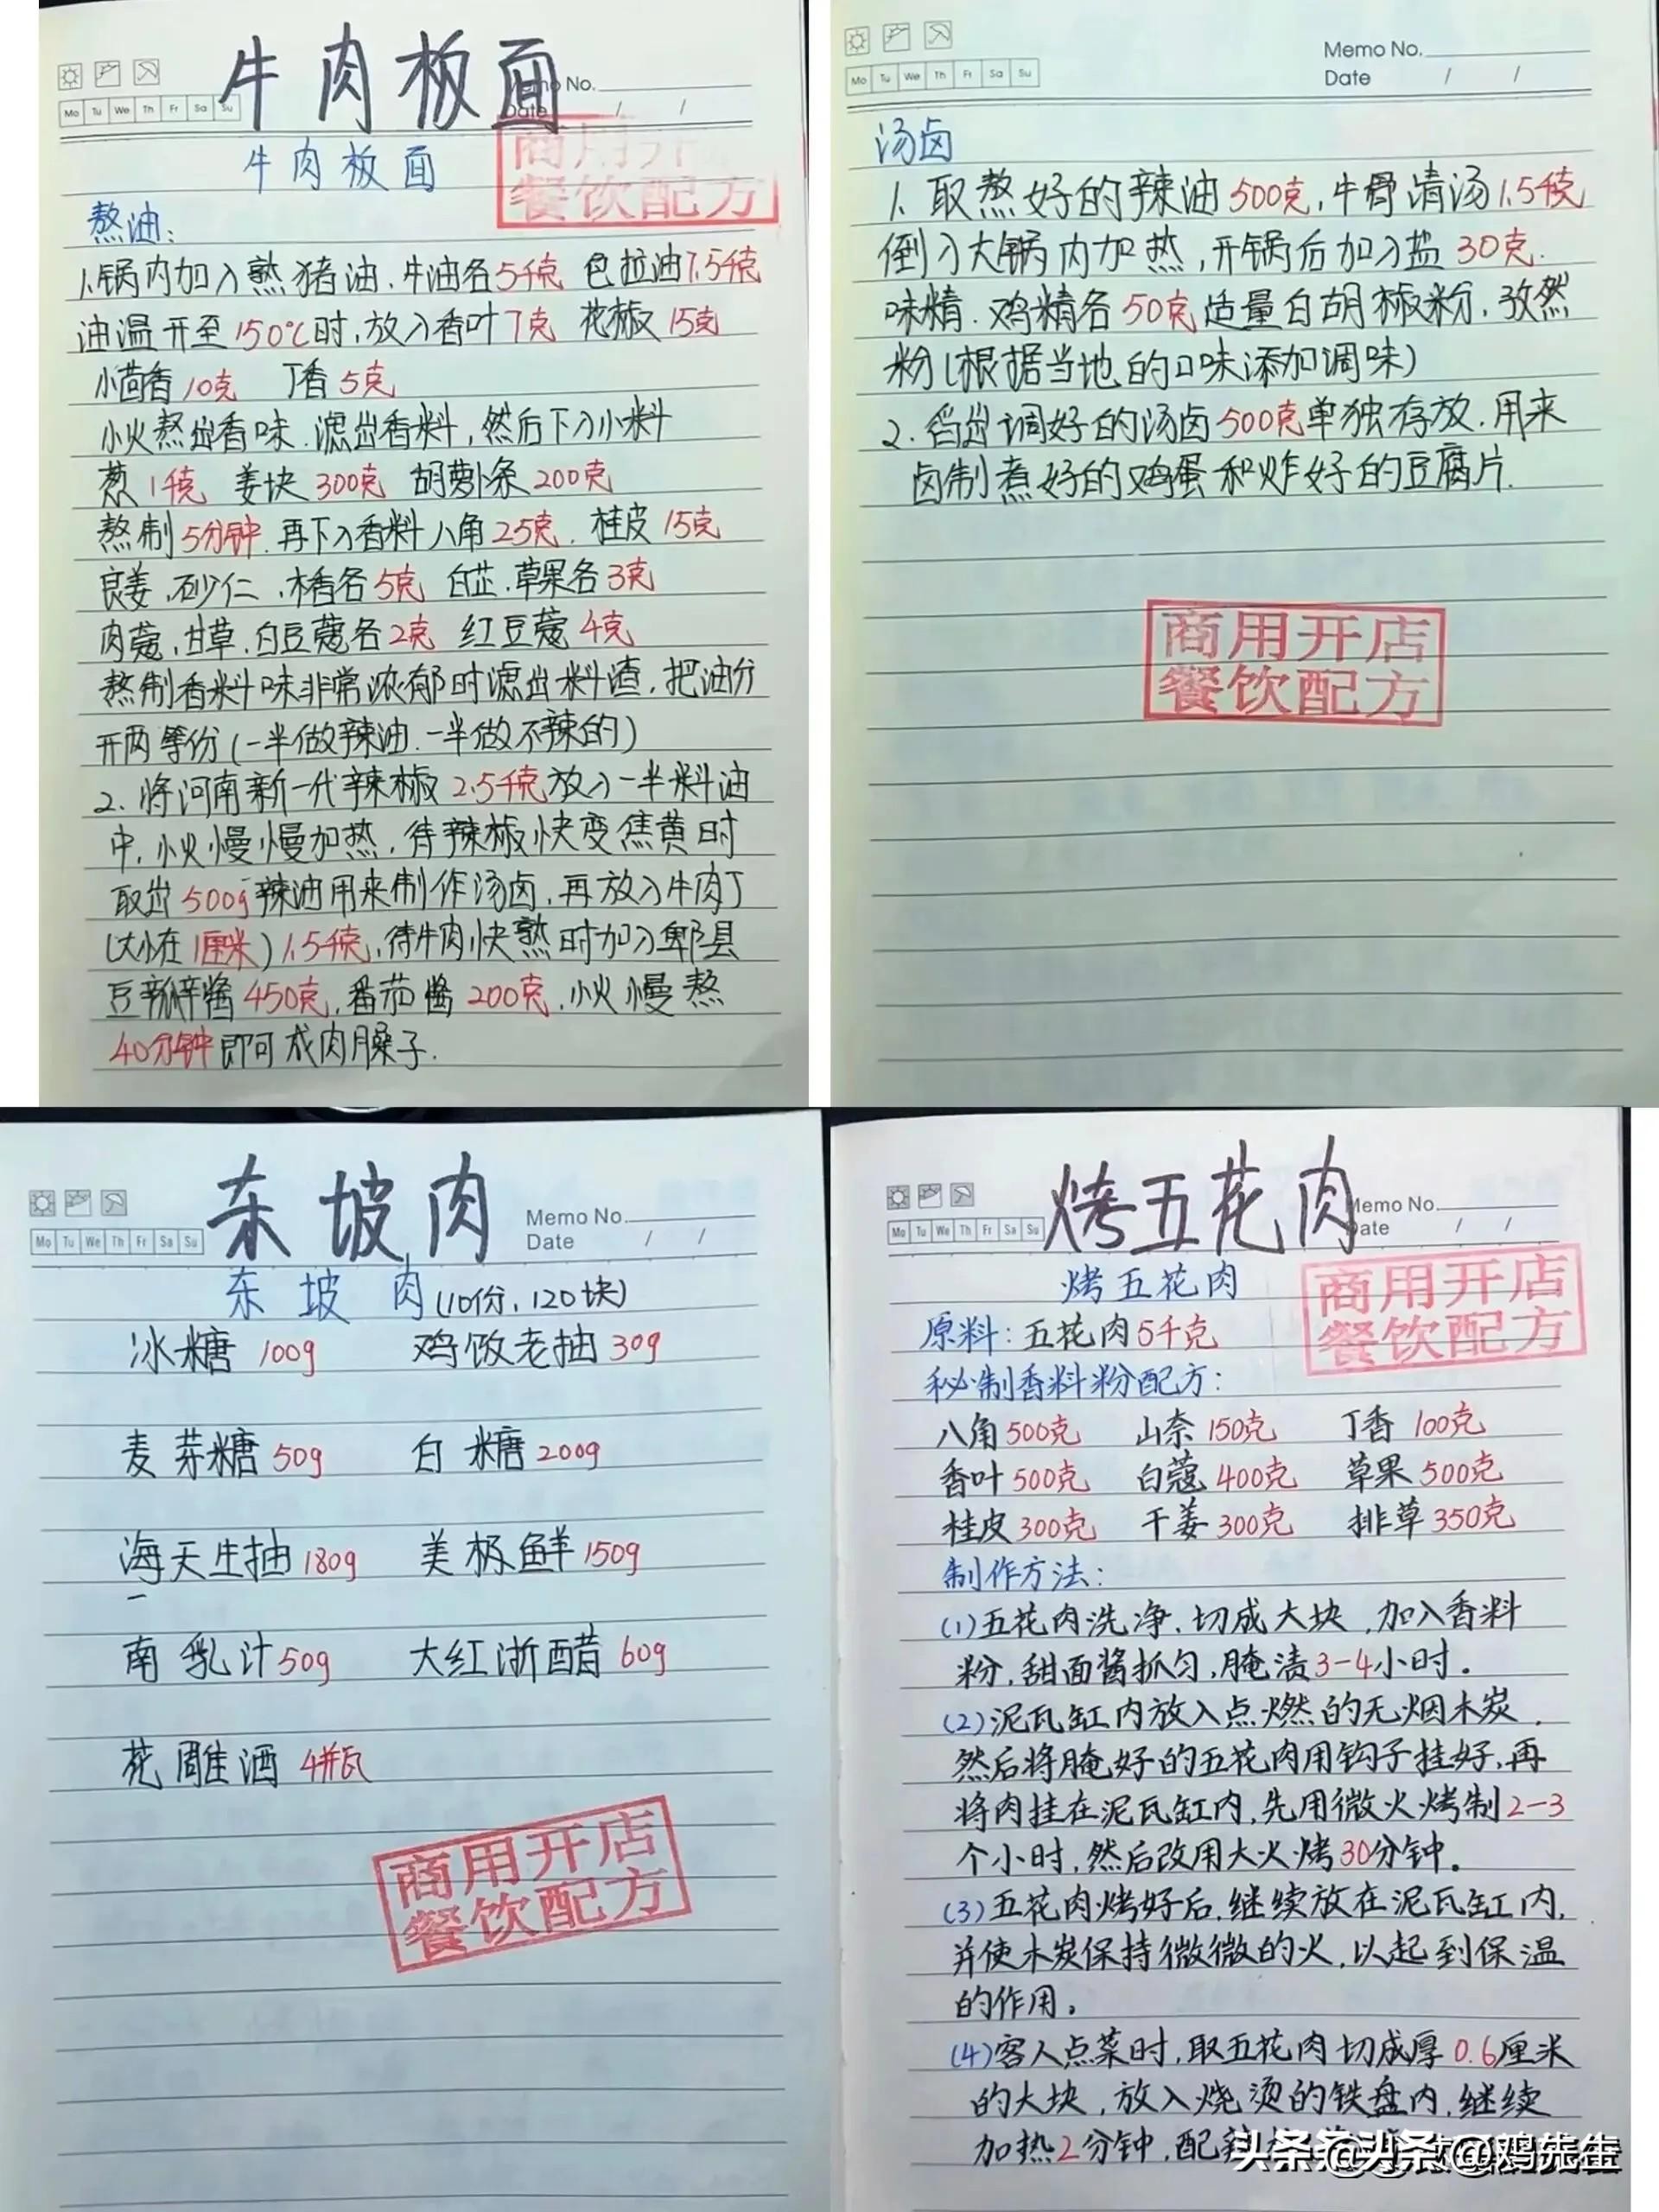 牛肉板面
Memo No.
Date / /
Mo Tu We Th Fr Sa Su
牛肉板面
商用开
餐饮配方
熬油：
1.锅内加入熟猪油.牛油各5千克 色拉油7.5千克
油温开至150℃时,放入香叶7克 花椒15克
小茴香10克 丁香5克
小火熬出香味.滤出香料,然后下入小料
葱1千克 姜块300克 胡萝卜条200克
熬制5分钟.再下入香料八角25克.桂皮15克
良姜.砂仁.木香各5克 白芷.草果各3克
肉蔻.甘草.白豆蔻各2克 红豆蔻4克
熬制香料味非常浓郁时滤出料渣,把油分
开两等份(一半做辣油.一半做不辣的)
2.将河南新一代辣椒2.5千克放入一半料油
中,小火慢慢加热,待辣椒快变焦黄时
取出500g辣油用来制作汤卤,再放入牛肉丁
(大小在1厘米)1.5千克,待牛肉快熟时加入郫县
豆瓣酱450克,番茄酱200克,小火慢熬
40分钟即可成肉臊子.
Memo No.
Date / /
Mo Tu We Th Fr Sa Su
汤卤
1.取熬好的辣油500克,牛骨清汤1.5千克
倒入大锅内加热,开锅后加入盐30克.
味精.鸡精各50克适量白胡椒粉,孜然
粉(根据当地的口味添加调味)
2.舀出调好的汤卤500克单独存放.用来
卤制煮好的鸡蛋和炸好的豆腐片.
商用开店
餐饮配方
东坡肉
Memo No.
Date / /
Mo Tu We Th Fr Sa Su
东坡肉(10份,120块)
冰糖100g 鸡饭老抽30g
麦芽糖50g 白糖200g
海天生抽180g 美极鲜150g
南乳汁50g 大红浙醋60g
花雕酒4瓶
商用开店
餐饮配方
烤五花肉
Memo No.
Date / /
Mo Tu We Th Fr Sa Su
烤五花肉
商用开店
餐饮配方
原料:五花肉5千克
秘制香料粉配方:
八角500克 山奈150克 丁香100克
香叶500克 白蔻400克 草果500克
桂皮300克 干姜300克 排草350克
制作方法:
(1)五花肉洗净,切成大块,加入香料
粉,甜面酱抓匀,腌渍3-4小时。
(2)泥瓦缸内放入点燃的无烟木炭,
然后将腌好的五花肉用钩子挂好,再
将肉挂在泥瓦缸内,先用微火烤制2-3
个小时,然后改用大火烤30分钟。
(3)五花肉烤好后,继续放在泥瓦缸内,
并使木炭保持微微的火,以起到保温
的作用。
(4)客人点菜时,取五花肉切成厚0.6厘米
的大块,放入烧烫的铁盘内,继续
加热2分钟,配
头条@头条@鸡先生